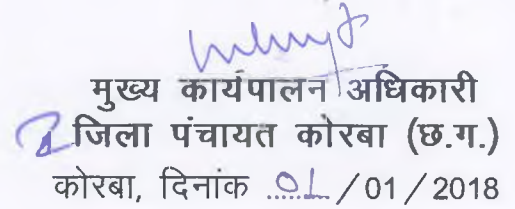 मुख्य कार्यपालन अधिकारी
जिला पंचायत कोरबा (छ.ग.)
कोरबा, दिनांक 01/01/2018